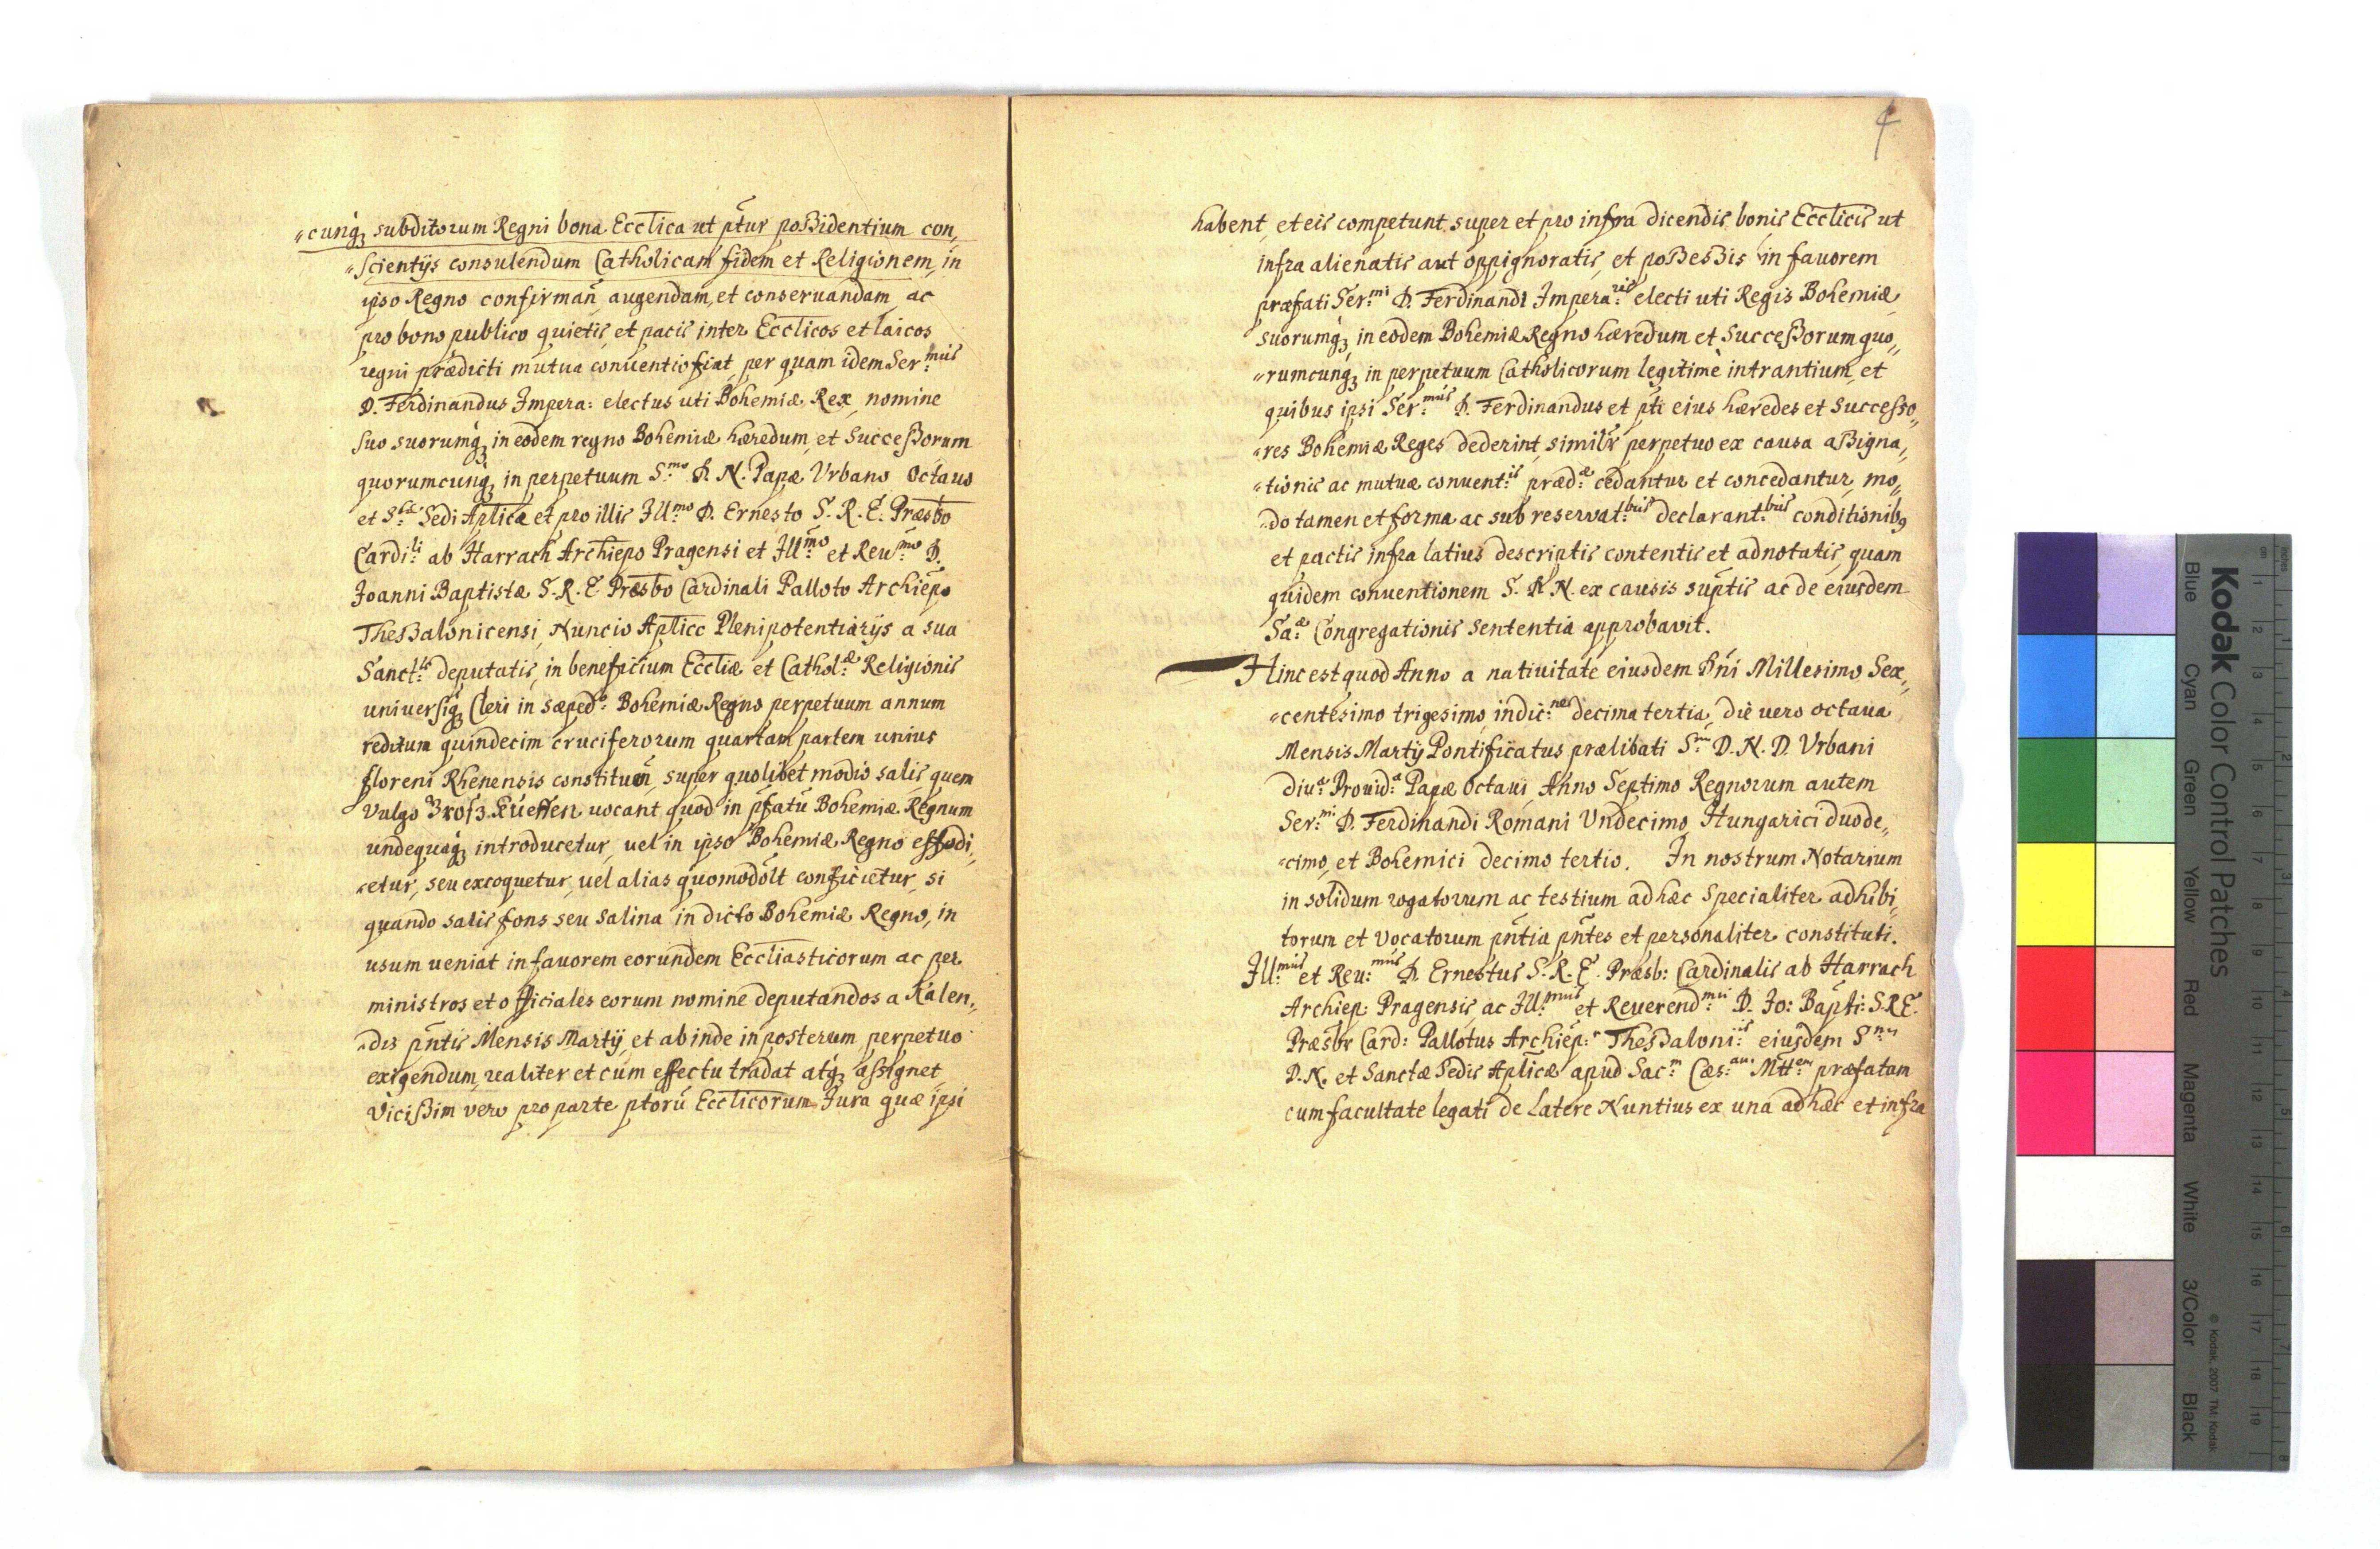 „cunqꝫ subditorum Regni bona Ecctica ut ptur poßidentium con„
„scientijs consulendum Catholicam fidem et Religionem, in
ipso Regno confirman̄ augendam, et conseruandam ac
pro bono publico quietis, et pacis inter Eccticos et laicos
regni prædicti mutua conuentio fiat, per quam idem Ser:mus
D. Ferdinandus Impera: electus uti Bohemiæ Rex, nomine
suo suorumqꝫ in eodem regno Bohemiæ hæredum, et Succeßorum
quorumcunqꝫ in perpetuum S:mo D. N. Papæ Vrbano Octauo
et S:tæ Sedi Apticæ et pro illis Ill:mo D. Ernesto S. R. E. Præsbo
Cardi:li ab Harrach Archiepo Pragensi et Ill:mo et Reu:mo D.
Joanni Baptistæ S. R. E. Præsbo Cardinali Palloto Archiepo
Theßalonicensi, Nuncio Apticc Plenipotentiarijs a sua
Sanct:te deputatis, in beneficium Eccliæ et Cathol:æ Religionis
uniuersiqꝫ Cleri in sæped:o Bohemiæ Regno perpetuum annum
reditum quindecim cruciferorum quartam partem unius
floreni Rhenensis constituen̄, super quolibet modio salis, quem
Vulgo Groß Kueffen uocant quod in pfatū Bohemiæ Regnum
undequaqꝫ introducetur, uel in ipso Bohemiæ Regno effodi„
„etur, seu excoquetur, uel alias quomodolt conficietur, si
quando salis fons seu Salina in dicto Bohemiæ Regno, in
usum ueniat in fauorem eorundem Eccliasticorum ac per
ministros et officiales eorum nomine deputandos a Kalen„
„dis pntis Mensis Martij, et abinde in posterum perpetuo
exigendum, realiter et cum effectu tradat atqꝫ aßignet,
Vicißim vero pro parte ptorū Eccticorum Jura quæ ipsi
4
habent, et eis competunt super et pro infra dicendis bonis Eccticis ut
infra alienatis aut oppignoratis, et poßeßis in fauorem
præfati Ser:mi D. Ferdinandi Impera:ris electi uti Regis Bohemiæ
suorumqꝫ in eodem Bohemiæ Regno hæredum et Succeßorum quo„
„rumcunqꝫ in perpetuum Catholicorum legitimè intrantium, et
quibus ipsi Ser:mus D. Ferdinandus et pti eius hæredes et Succeßo„
„res Bohemiæ Reges dederint, similr perpetuo ex causa aßigna„
„tionis ac mutuæ conuent:is præd:æ cedantur et concedantur, mo„
„do tamen et forma ac sub reservat:bus declarant:bus conditionibꝰ
et pactis infra latius descriptis contentis et adnotatis, quam
quidem conuentionem S. D. N. ex causis suptis ac de eiusdem
Sa:æ Congregationis sententia approbavit.
Hinc est quod Anno a natiuitate eiusdem Dni Millesimo Sex„
„centesimo trigesimo, indic:ne decima tertia, die uero octaua
Mensis Martij Pontificatus prælibati S:mi D. N. D. Vrbani
diu:a Prouid:a Papæ Octaui, Anno Septimo Regnorum autem
Ser:mi D. Ferdinandi Romani Vndecimo, Hungarici duode„
„cimo, et Bohemici decimo tertio. In nostrum Notarium
in solidum rogatorum ac testium ad hæc Specialiter adhibi„
torum et Vocatorum pntia pntes et personaliter constituti.
Ill:mus et Reu:mus D. Ernestus S. R. E. Præsb: Cardinalis ab Harrach
Archiep: Pragensis, ac Ill:mus et Reuerend:mus D. Jo: Bapti: S. R. E.
Præsbr Card: Pallotus Archiep: Theßaloni:is eiusdem S:mi
D. N. et Sanctæ Sedis Apticæ apud Sac:m Cæs:am Mtt:em præfatam
cum facultate legati de Latere Nuntius ex una ad hæc et infra
Kodak Color Control Patches
Blue Cyan Green Yellow Red Magenta White 3/Color Black
© Kodak, 2007. TM: Kodak